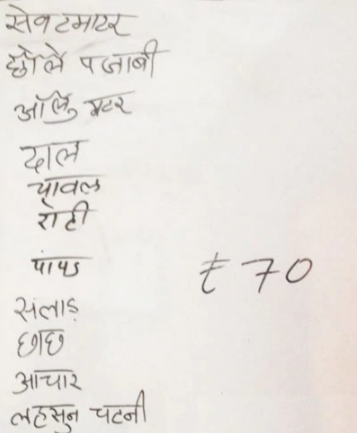 सेवटमाटर
छोले पंजाबी
ऑलु मटर
दाल
चावल
रोटी
पापड
₹ 70
सलाड़
छाछ
आचार
लहसुन चटनी